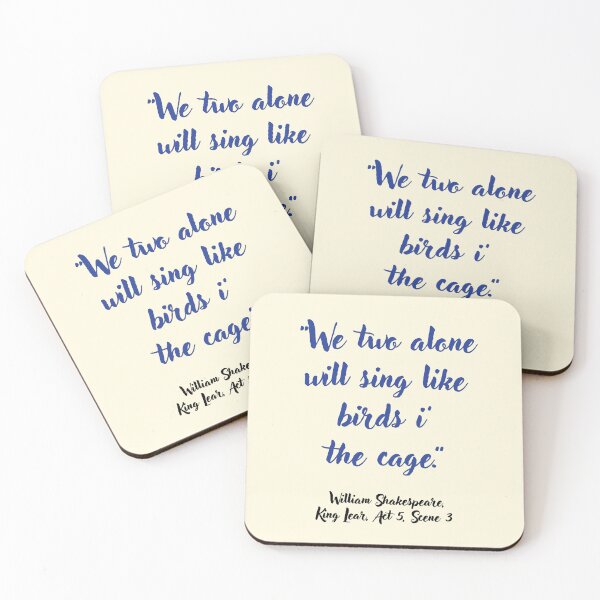 "We two alone
will sing like
birds i'
"We two alone
will sing like
birds i'
the cage."
"We two alone
will sing like
birds i'
the cage."
William
King Lear, Act
"We two alone
will sing like
birds i'
the cage."
William Shakespeare,
King Lear, Act 5, Scene 3